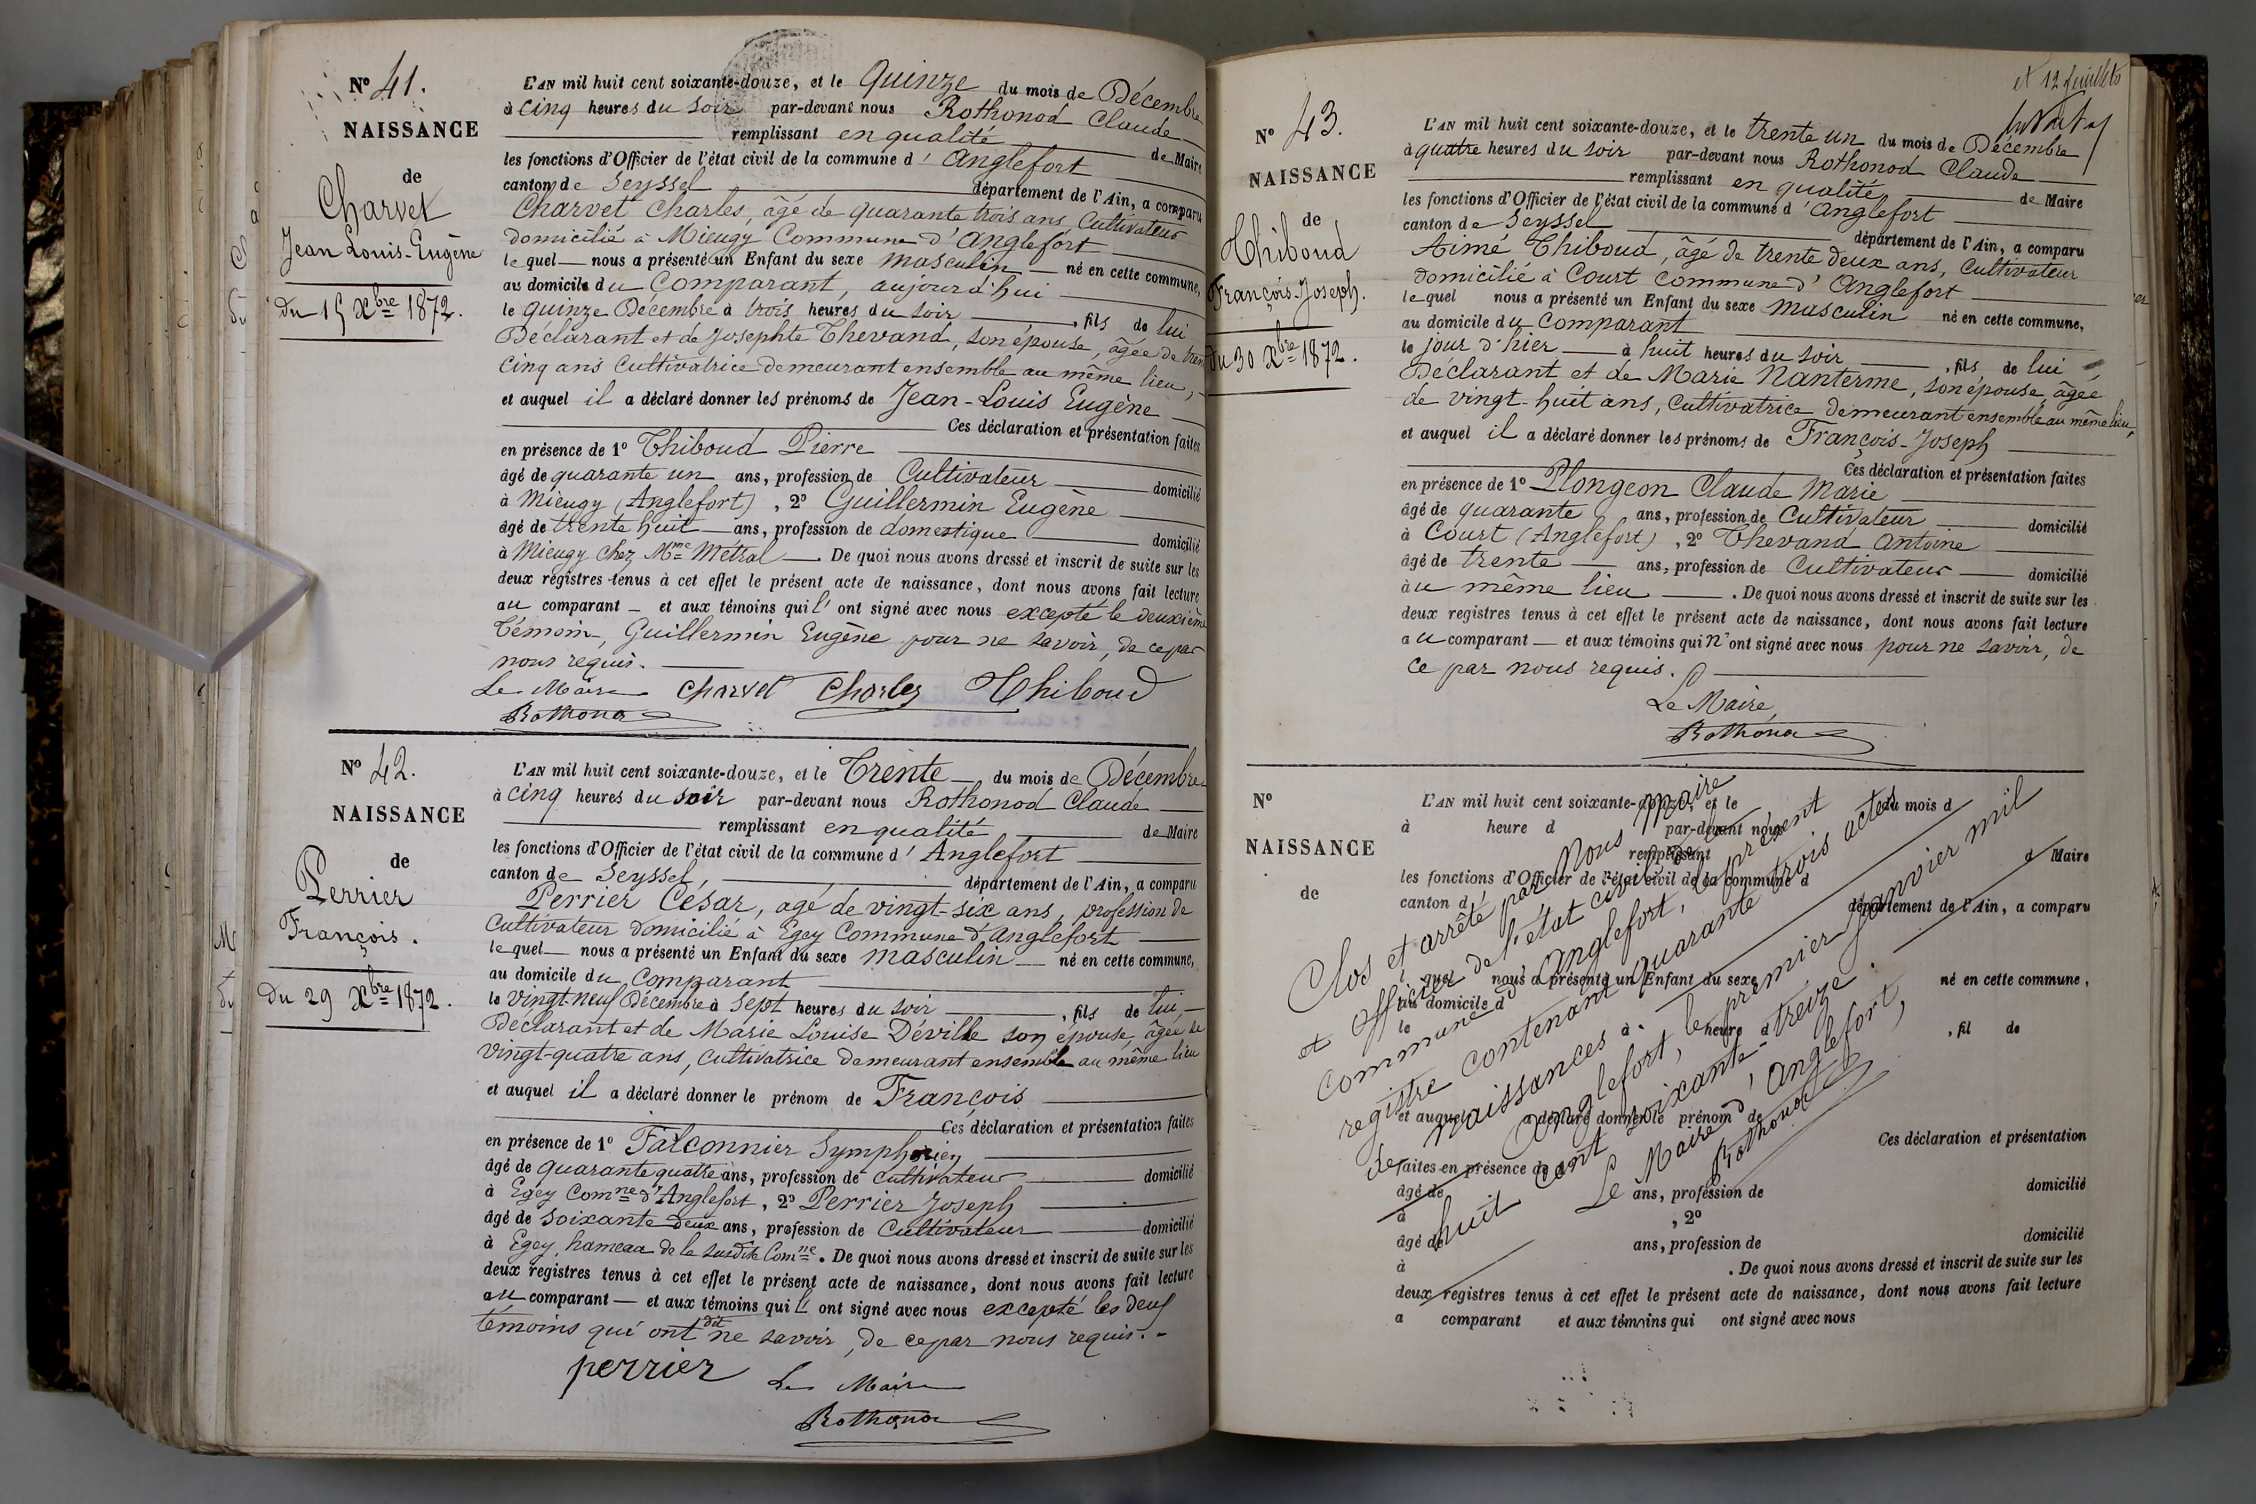 Nº 41.
NAISSANCE
de
Charvet
Jean Louis-Eugène
du 15 Xbre 1872.
L'AN mil huit cent soixante-douze, et le Quinze du mois de Décembre
à cinq heures du soir par-devant nous Rothonod Claude
remplissant en qualité de Maire
les fonctions d'Officier de l'état civil de la commune d'Anglefort
canton de Seyssel département de l'Ain, a comparu
Charvet Charles, âgé de quarante trois ans, Cultivateur
domicilié à Mieugy Commune d'Anglefort
lequel nous a présenté un Enfant du sexe masculin né en cette commune,
au domicile du Comparant, aujourd'hui
le quinze Décembre à trois heures du soir, fils de lui
Déclarant et de Josephte Thevand, son épouse, âgée de
cinq ans Cultivatrice demeurant ensemble au même lieu,
et auquel il a déclaré donner les prénoms de Jean-Louis Eugène
Ces déclaration et présentation faites
en présence de 1º Thiboud Pierre
âgé de quarante un ans, profession de Cultivateur domicilié
à Mieugy (Anglefort), 2º Guillermin Eugène
âgé de trente huit ans, profession de domestique domicilié
à Mieugy chez Mme Mettral De quoi nous avons dressé et inscrit de suite sur les
deux registres tenus à cet effet le présent acte de naissance, dont nous avons fait lecture
au comparant et aux témoins qui l'ont signé avec nous excepté le deuxième
Témoin, Guillermin Eugène pour ne savoir, de ce par
nous requis.
Le Maire Charvet Charles Thiboud
Rothonod
Nº 42.
NAISSANCE
de
Perrier
François.
Du 29 Xbre 1872.
L'AN mil huit cent soixante-douze, et le Trente du mois de Décembre
à cinq heures du soir par-devant nous Rothonod Claude
remplissant en qualité de Maire
les fonctions d'Officier de l'état civil de la commune d'Anglefort
canton de Seyssel, département de l'Ain, a comparu
Perrier César, agé de vingt-six ans, profession de
Cultivateur domicilié à Egey Commune d'Anglefort
lequel nous a présenté un Enfant du sexe masculin né en cette commune,
au domicile du Comparant
le vingt-neuf Décembre à Sept heures du soir, fils de lui,
Déclarant et de Marie Louise Déville son épouse, âgée de
vingt-quatre ans, cultivatrice demeurant ensemble au même lieu
et auquel il a déclaré donner le prénom de François
Ces déclaration et présentation faites
en présence de 1º Falconnier Symphorien
âgé de quarante quatre ans, profession de cultivateur domicilié
à Egey Comne d'Anglefort, 2º Perrier Joseph
âgé de soixante deux ans, profession de Cultivateur domicilié
à Egey, hameau de la susdite Comne. De quoi nous avons dressé et inscrit de suite sur les
deux registres tenus à cet effet le présent acte de naissance, dont nous avons fait lecture
au comparant et aux témoins qui l'ont signé avec nous excepté les deux
témoins qui ont dit ne savoir, de ce par nous requis.
perrier Le Maire
Rothonod
12 Juillet
Nº 43.
NAISSANCE
de
Thiboud
François-Joseph.
du 30 Xbre 1872.
L'AN mil huit cent soixante-douze, et le trente un du mois de Décembre
à quatre heures du soir par-devant nous Rothonod Claude
remplissant en qualité de Maire
les fonctions d'Officier de l'état civil de la commune d'Anglefort
canton de Seyssel département de l'Ain, a comparu
Aimé Thiboud, âgé de trente deux ans, Cultivateur
domicilié à Court commune d'Anglefort
lequel nous a présenté un Enfant du sexe masculin né en cette commune,
au domicile du Comparant
le jour d'hier à huit heures du soir, fils de lui
Déclarant et de Marie Nanterme, son épouse, âgée
de vingt-huit ans, cultivatrice demeurant ensemble au même lieu,
et auquel il a déclaré donner les prénoms de François-Joseph
Ces déclaration et présentation faites
en présence de 1º Plongeon Claude Marie
âgé de quarante ans, profession de Cultivateur domicilié
à Court (Anglefort), 2º Thevand Antoine
âgé de trente ans, profession de Cultivateur domicilié
au même lieu. De quoi nous avons dressé et inscrit de suite sur les
deux registres tenus à cet effet le présent acte de naissance, dont nous avons fait lecture
au comparant et aux témoins qui n'ont signé avec nous pour ne savoir, de
ce par nous requis.
Le Maire,
Rothonod
Nº
NAISSANCE
de
L'AN mil huit cent soixante-douze, et le du mois d
à heure d par-devant nous
remplissant d Maire
les fonctions d'Officier de l'état civil de la commune d
canton d département de l'Ain, a comparu
l quel nous a présenté un Enfant du sexe né en cette commune,
au domicile d
le à heure d, fil de
et auquel a déclaré donner le prénom de
Ces déclaration et présentation
faites en présence de 1º
âgé de ans, profession de domicilié
à , 2º
âgé de ans, profession de domicilié
à . De quoi nous avons dressé et inscrit de suite sur les
deux registres tenus à cet effet le présent acte de naissance, dont nous avons fait lecture
a comparant et aux témoins qui ont signé avec nous
Clos et arrêté par Nous Maire
et Officier de l'état civil de la
Commune d'Anglefort, le présent
registre contenant quarante trois actes
de naissances à
Anglefort, le premier Janvier mil
huit cent soixante-treize.
Le Maire d'Anglefort,
Rothonod